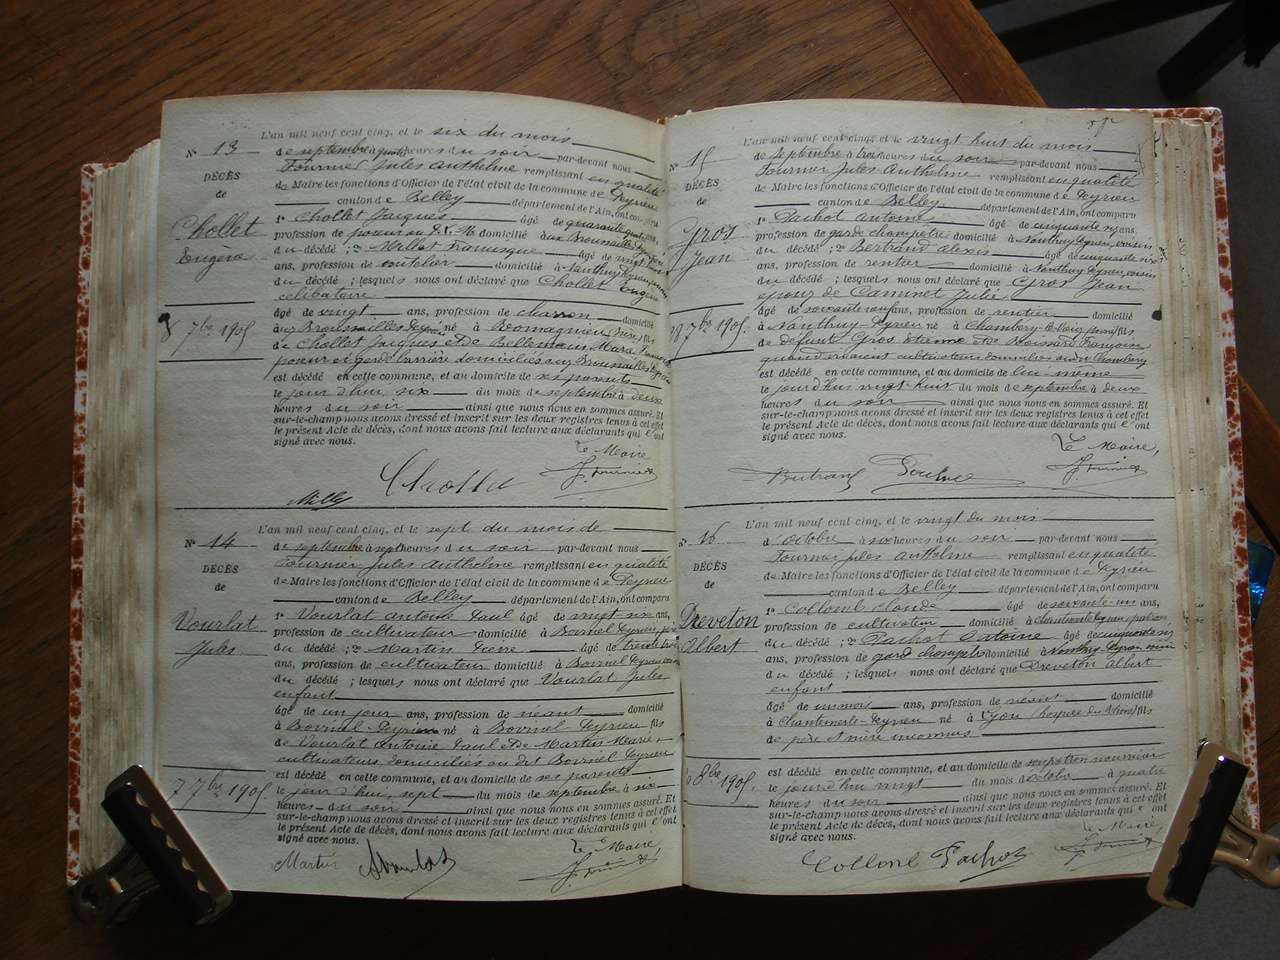 L'an mil neuf cent cinq, et le six du mois
N° 13
de septembre à quatre heures du soir par-devant nous
Fournier Jules Anthelme remplissant en qualité
DÉCÈS
de Maire les fonctions d'Officier de l'état civil de la commune de Peyrieu
de
canton de Belley département de l'Ain, ont comparu
Chollet
1° Chollet Jacques âgé de quarante
Eugène
profession de domicilié aux Brousailles
du décédé ; 2° Millet Francisque âgé de vingt
ans, profession de domicilié à Nanthuy Peyrieu
du décédé ; lesquels nous ont déclaré que Chollet Eugène
célibataire
âgé de vingt ans, profession de charron domicilié
7bre 1905
aux Brousailles Peyrieu né à Isère fils
de Chollet Jacques et de Marie
domiciliés aux Brousailles
est décédé en cette commune, et au domicile de ses parents
le jour d'hui six du mois de septembre à deux
heures du soir ainsi que nous nous en sommes assuré. Et
sur-le-champ nous avons dressé et inscrit sur les deux registres tenus à cet effet
le présent Acte de décès, dont nous avons fait lecture aux déclarants qui l'ont
signé avec nous.
Le Maire
Chollet
J. Fournier
L'an mil neuf cent cinq, et le sept du mois de
N° 14
de septembre à sept heures du soir par-devant nous
Fournier Jules Anthelme remplissant en qualité
DÉCÈS
de Maire les fonctions d'Officier de l'état civil de la commune de Peyrieu
de
canton de Belley département de l'Ain, ont comparu
Vourlat
1° Vourlat Antoine Paul âgé de vingt six ans,
Jules
profession de cultivateur domicilié à Bovinel Peyrieu
du décédé ; 2° Martin Pierre âgé de trente trois
ans, profession de cultivateur domicilié à Bovinel Peyrieu
du décédé ; lesquels nous ont déclaré que Vourlat Jules
enfant
âgé de un jour ans, profession de néant domicilié
à Bovinel Peyrieu né à Bovinel Peyrieu fils
de Vourlat Antoine Paul et de Martin Marie
cultivateurs domiciliés au dit Bovinel Peyrieu
est décédé en cette commune, et au domicile de ses parents
7 7bre 1905.
le jour d'hui, sept du mois de septembre à six
heures du soir ainsi que nous nous en sommes assuré. Et
sur-le-champ nous avons dressé et inscrit sur les deux registres tenus à cet effet
le présent Acte de décès, dont nous avons fait lecture aux déclarants qui l'ont
signé avec nous.
Le Maire,
Martin AVourlat
J. Fournier
L'an mil neuf cent cinq, et le vingt huit du mois
N° 15
de septembre à trois heures du soir par-devant nous
Fournier Jules Anthelme remplissant en qualité
DÉCÈS
de Maire les fonctions d'Officier de l'état civil de la commune de Peyrieu
de
canton de Belley département de l'Ain, ont comparu
Gros
1° Pachot Antoine âgé de cinquante six ans,
Jean
profession de garde champêtre domicilié à Nanthuy Peyrieu, voisin
du décédé ; 2° Bertrand Alexis âgé de cinquante six
ans, profession de rentier domicilié à Nanthuy Peyrieu, voisin
du décédé ; lesquels nous ont déclaré que Gros Jean
époux de Julie
âgé de soixante ans, profession de rentier domicilié
28 7bre 1905.
à Nanthuy Peyrieu né à fils
de défunt Gros Etienne et de Françoise
quand vivaient cultivateurs domiciliés
est décédé en cette commune, et au domicile de lui-même
le jourd'hui vingt huit du mois de septembre à deux
heures du soir ainsi que nous nous en sommes assuré. Et
sur-le-champ nous avons dressé et inscrit sur les deux registres tenus à cet effet
le présent Acte de décès, dont nous avons fait lecture aux déclarants qui l'ont
signé avec nous.
Le Maire,
Bertrand Pachot
J. Fournier
L'an mil neuf cent cinq, et le vingt du mois
N° 16
d'octobre à six heures du soir par-devant nous
Fournier Jules Anthelme remplissant en qualité
DÉCÈS
de Maire les fonctions d'Officier de l'état civil de la commune de Peyrieu
de
canton de Belley département de l'Ain, ont comparu
Dreveton
1° Collomb Claude âgé de soixante un ans,
Albert
profession de cultivateur domicilié à Chantemerle Peyrieu
du décédé ; 2° Pachot Antoine âgé de cinquante six
ans, profession de garde champêtre domicilié à Nanthuy Peyrieu voisin
du décédé ; lesquels nous ont déclaré que Dreveton Albert
enfant
âgé de un mois ans, profession de néant domicilié
à Chantemerle Peyrieu né à Lyon fils
de père et mère inconnus
est décédé en cette commune, et au domicile de son père nourricier
8bre 1905.
le jourd'hui vingt du mois d'octobre à quatre
heures du soir ainsi que nous nous en sommes assuré. Et
sur-le-champ nous avons dressé et inscrit sur les deux registres tenus à cet effet
le présent Acte de décès, dont nous avons fait lecture aux déclarants qui l'ont
signé avec nous.
Le Maire,
Collomb Pachot
J. Fournier